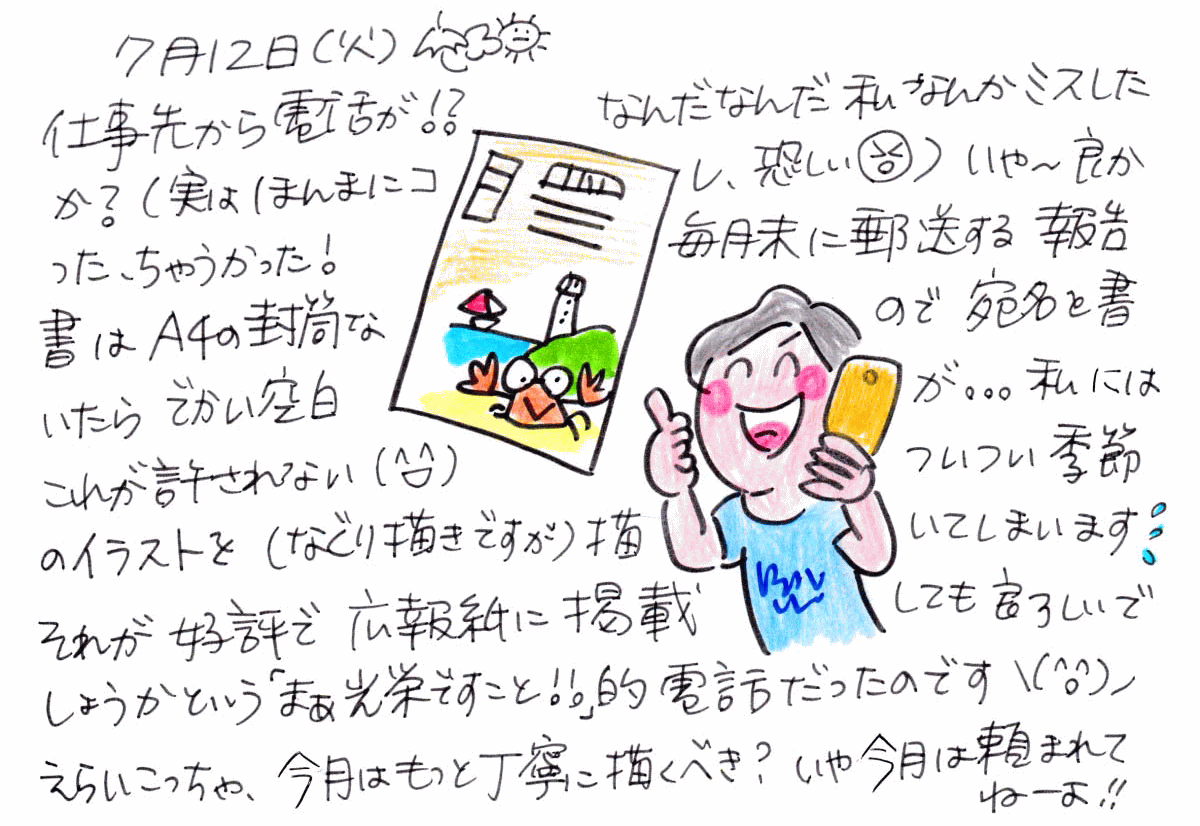 7月12日(火)
仕事先から電話が!? なんだなんだ 私なんかミスした
か?(実はほんまにコ し、恐しい) いや〜良か
った、ちゃうかった! 毎月末に郵送する 報告
書はA4の封筒な ので 宛名を書
いたら でかい空白 が。。。私には
これが許されない(^^) ついつい季節
のイラストを(なぐり描きですが)描 いてしまいます
それが 好評で 広報紙に 掲載 しても宜ろしいで
しょうかという「まぁ光栄ですこと!!」的 電話だったのです \(^o^)ノ
えらいこっちゃ、今月はもっと丁寧に描くべき? いや今月は頼まれて
ねーよ!!